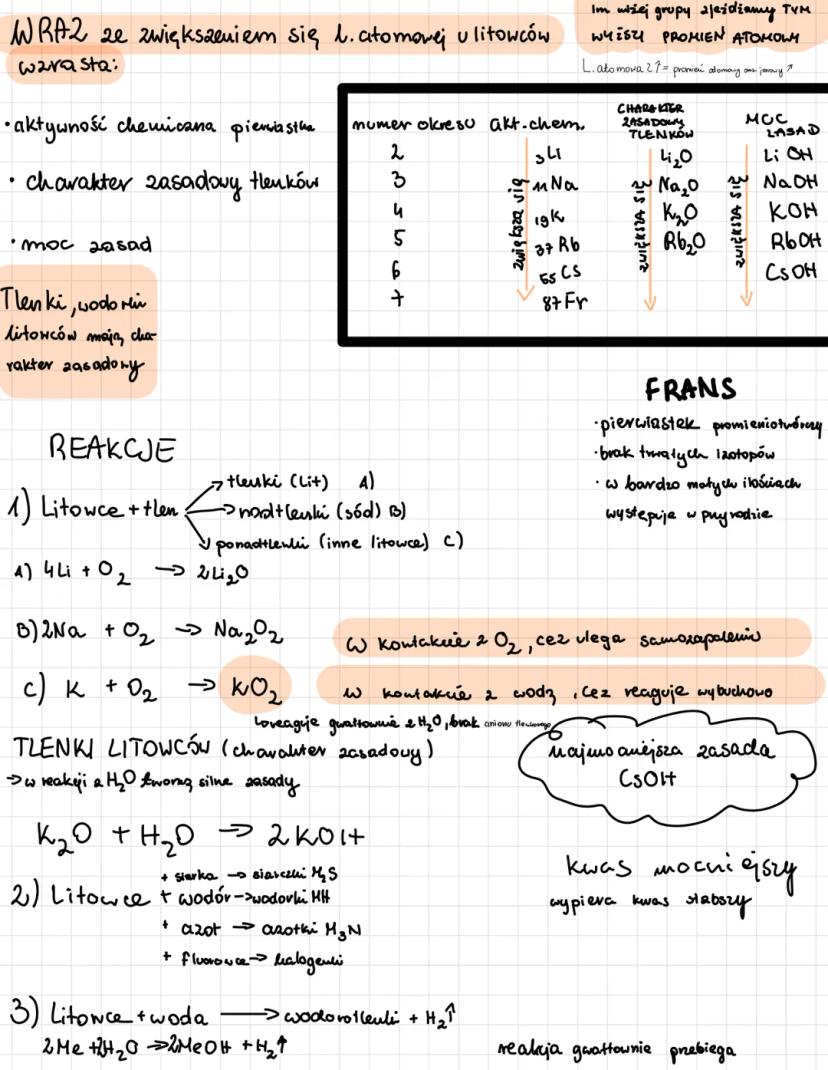 WRAZ ze zwiększeniem się l. atomowej u litowców
wzrasta:
Im niżej grupy zjeżdżamy TYM
WYŻSZY PROMIEŃ ATOMOWY
L. atomowa Z↑ = promień atomowy oraz jonowy ↑
• aktywność chemiczna pierwiastka
• charakter zasadowy tlenków
• moc zasad
Tlenki, wodorki
litowców mają cha-
rakter zasadowy
numer okresu akt. chem. CHARAKTER ZASADOWY TLENKÓW MOC ZASAD
2 3Li Li2O LiOH
3 11Na Na2O NaOH
4 19K K2O KOH
5 37Rb Rb2O RbOH
6 55Cs CsOH
7 87Fr
zwiększa się
ZWIĘKSZA SIĘ
ZWIĘKSZA SIĘ
FRANS
• pierwiastek promieniotwórczy
• brak trwałych izotopów
• w bardzo małych ilościach
występuje w przyrodzie
REAKCJE
1) Litowce + tlen
→ tlenki (Lit) A)
→ nadtlenki (sód) B)
↓ ponadtlenki (inne litowce) C)
A) 4Li + O2 → 2Li2O
B) 2Na + O2 → Na2O2
w kontakcie z O2, cez ulega samozapaleniu
C) K + O2 → KO2
w kontakcie z wodą, cez reaguje wybuchowo
↳ reaguje gwałtownie z H2O, brak anionu tlenkowego
TLENKI LITOWCÓW (charakter zasadowy)
→ w reakcji z H2O tworzą silne zasady
najmocniejsza zasada
CsOH
K2O + H2O → 2KOH
kwas mocniejszy
wypiera kwas słabszy
+ siarka → siarczki M2S
2) Litowce + wodór → wodorki MH
+ azot → azotki M3N
+ fluorowce → halogenki
3) Litowce + woda → wodorotlenki + H2↑
2Me + 2H2O → 2MeOH + H2↑
reakcja gwałtownie przebiega